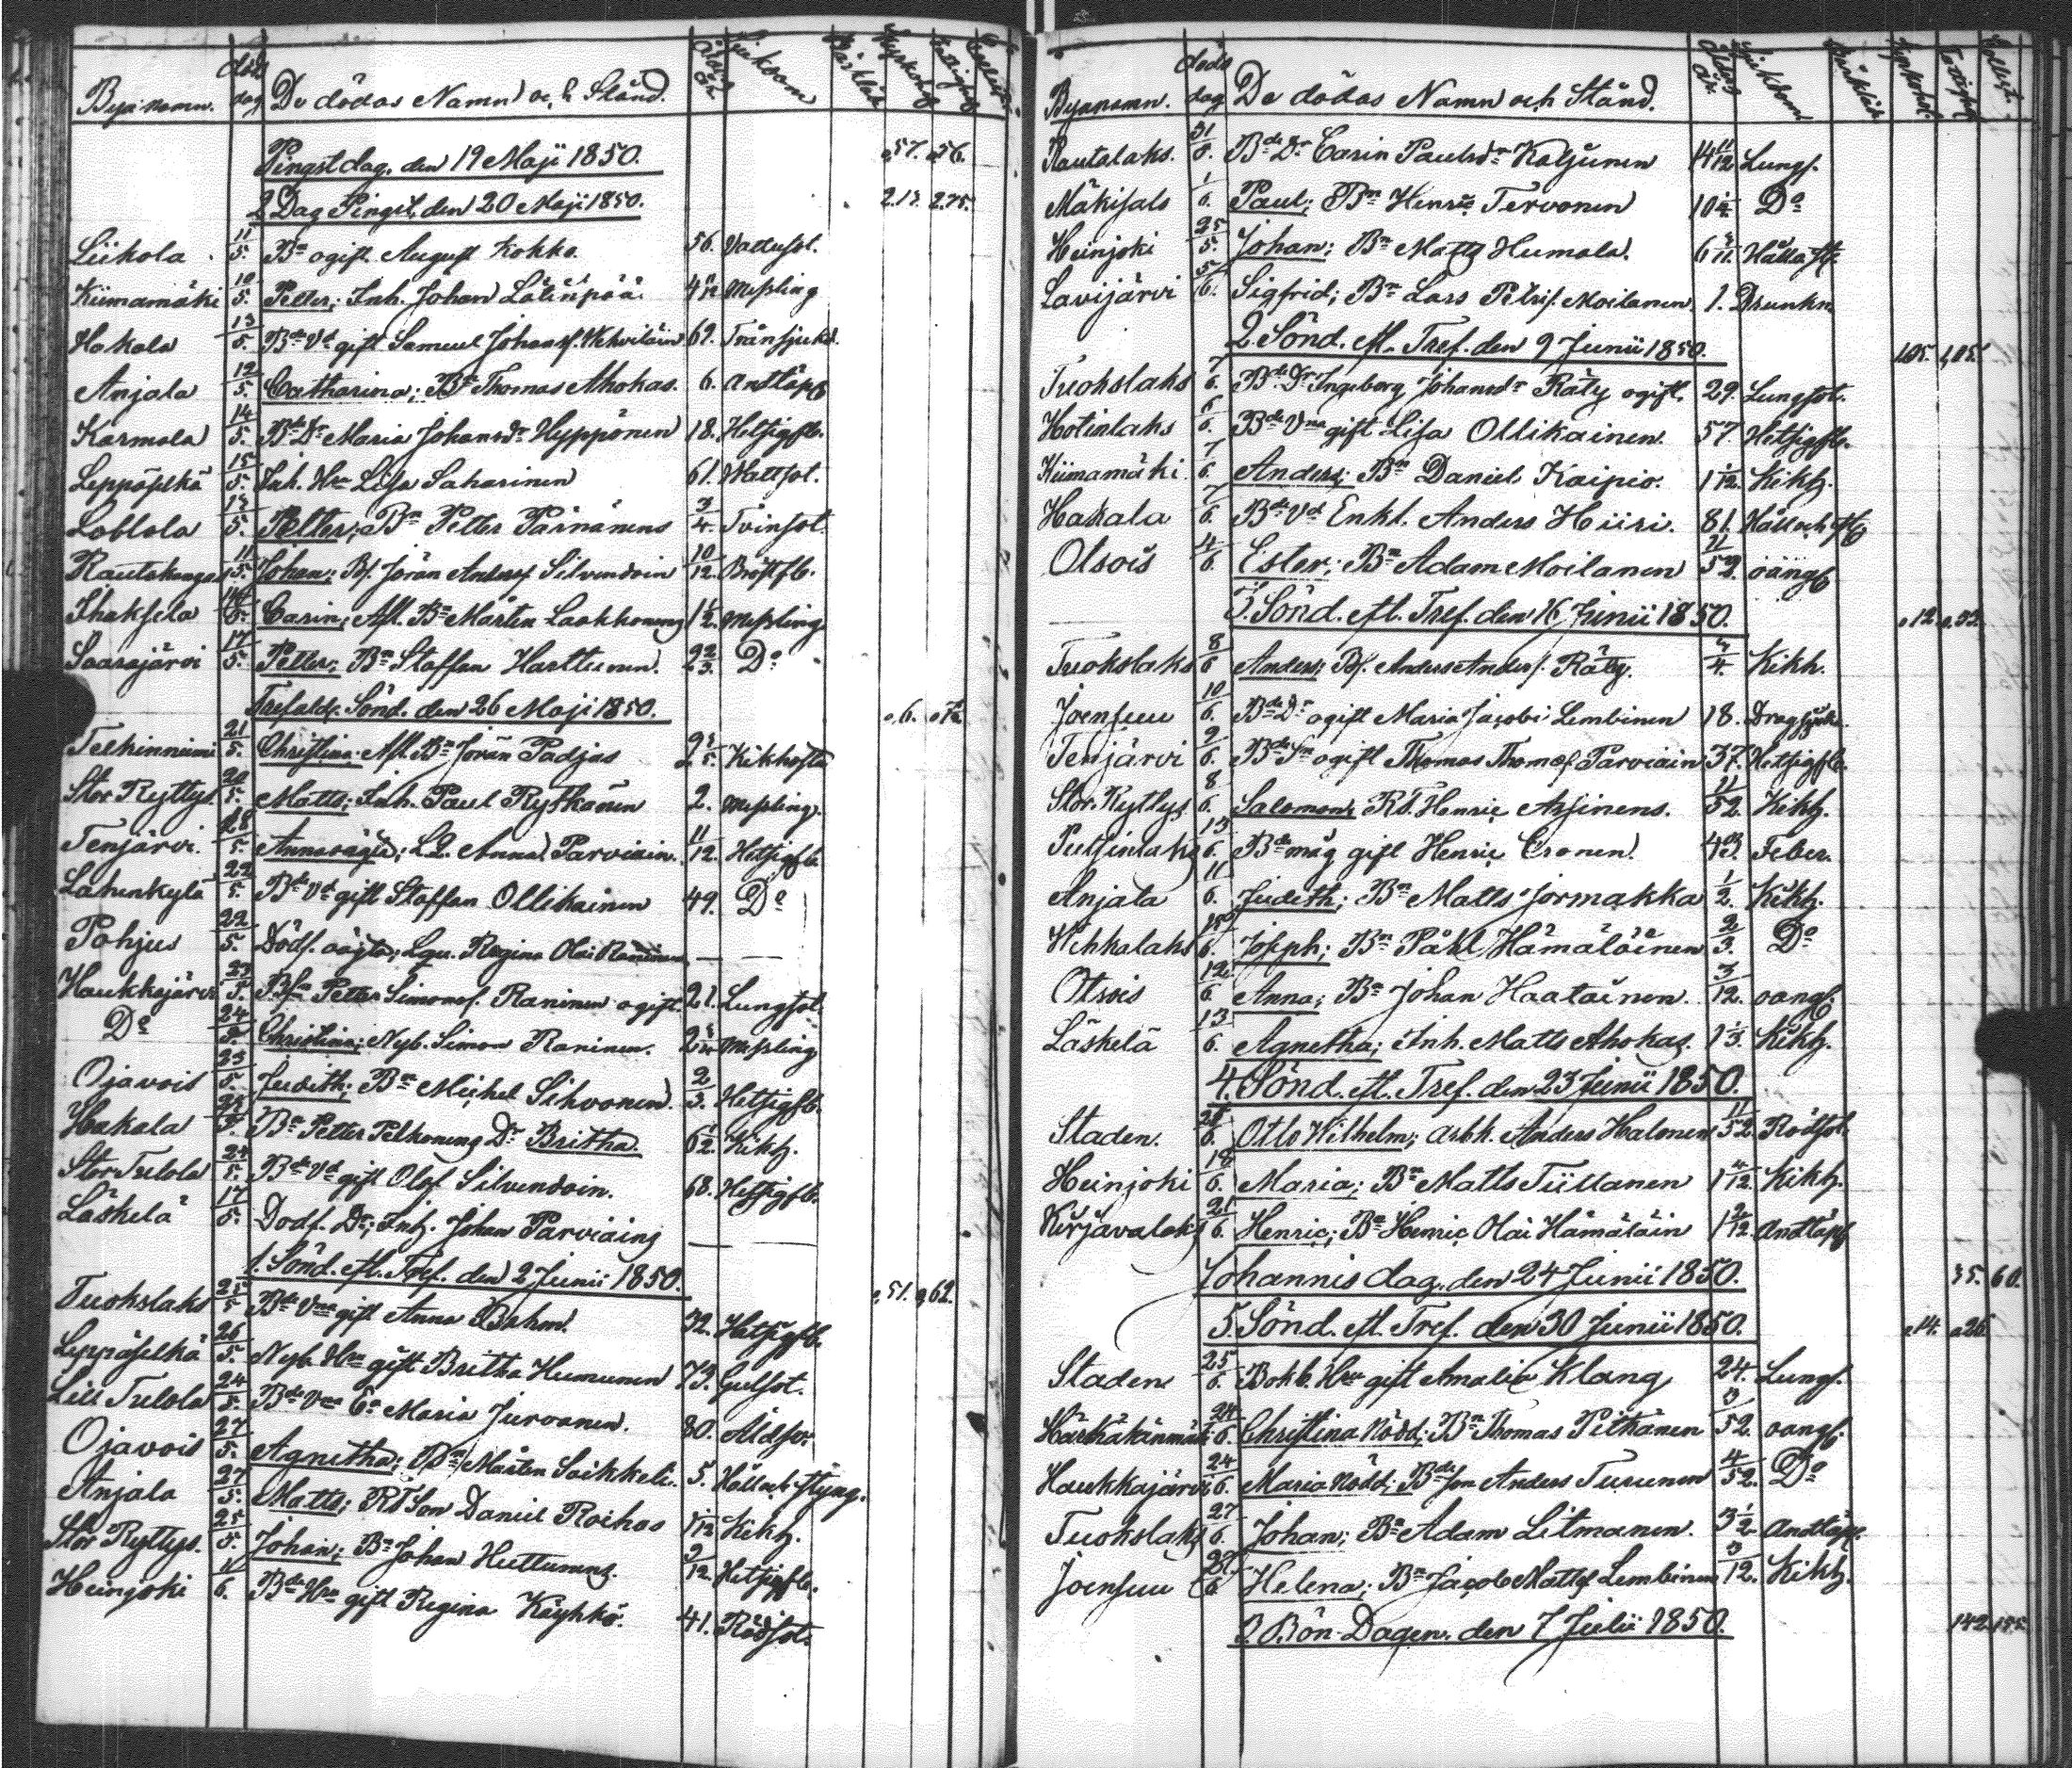 Bya namn. död dag De dödas Namn och Stånd. ålder år Sjukdom
Pingstdag. den 19 Maji 1850. 57. 56.
2 Dag Pingst, den 20 Maji 1850. 2.75.
Liikola 11/5. Bn ogift August Kokko. 56. Vattusot.
Kiimamäki 10/5. Petter; Inh. Johan Messling
Hakala 13/5. Bde Vd gift Samuel Johansf. Wehviläin 62. Trånsjukd.
Anjala 12/5. Catharina; Bn Thomas Ahokas. 6. Andtäpp
Karmala 14/5. Bde Dr Maria Johansdr Hyppönen 18. Hetsigfb.
Leppäselkä 15/5. Inh. Hru Lisa Saharinen 61. Wattsot.
Loblola 13/5. Petter; Bn Petter Pärnänens 3/4. Tvinsot.
Rautakangas 11/5. Johan; Bf. Jöran Andersf. Silvendoin 10/12. Bröstfb.
Ihaksela Carin; Afl. Bn Mårten Laakkonens 1 1/2. Messling
Saarajärvi 17/5. Petter; Bn Staffan Harttunen. 2 2/3. Do
Trefalds. Sönd. den 26 Maji 1850. 6.
Telkinniemi 21/5. Christina Afl. Bn Jöran Padjas Kikhosta
Stor Ryttys. 20/5. Matts; Inh. Paul Rytkönen 2. Messling.
Tenjärvi. Anna oägta; LQ. Anna Parviain. 11/12. Hetsigfb.
Lahenkylä 22/5. Bde Vd gift Staffan Ollikainen 49. Do
Pohjus 22/5. Dödf. oägta; Lqu. Regina Olai Raninen — —
Haukkajärvi 23/5. Bfn Petter Simonsf. Raninen ogift. 21. Lungsot.
Do 24/5. Christina; Nyb. Simon Raninen. Messling
Ojavois 23/5. Judith; Bn Michel Sihvonen. 2/3. Hetsigfb.
Hakala Bn Petter Pelkonens Dr Britha. 6 1/2. Kikh.
Stor Tulola 24/5. Bde Vd gift Olof Silvendoin. 68. Hetsigfb.
Läskelä 17/5. Dödf. Dr; Inh. Johan Parviains — —
1. Sönd. eft. Tref. den 2 Junii 1850. 51. 62.
Tuokslaks 25/5 Bde Vna gift Anna Bohm. 72. Hetsigfb.
Leppäselkä 26/5. Nyb. Hru gift Britha Humunen 73. Gulsot.
Lill Tulola 24/5. Bde Vna Ea Maria Jurvanen. 80. Åldfr.
Ojavois 27/5. Agnetha; Bn Mårten Soikkeli. 5. Håll och styng.
Anjala 27/5. Matts; RT Son Daniel Roihas 1/12 Kikh.
Stor Ryttys. 25/5. Johan; Bn Johan Huttunens. 9/12. Hetsigfb.
Heinjoki Bde Hru gift Regina Käyhkö. 41. Rödsot.
Byanamn. döds dag De dödas Namn och Stånd. ålder år Sjukdom
Rautalaks. Bde Dr Carin Paulsdr Kaljunen Lungs.
Mäkisalo 1/6. Paul; Bn Henric Tervonen Do
Heinjoki 25/5. Johan; Bn Matts Humala.
Lavijärvi 5/6. Sigfrid; Bn Lars Petrif. Moilanen. 1. Drunkn.
2. Sönd. eft. Tref. den 9 Junii 1850. 105. 105.
Tuokslaks 7/6. Bde Dr Ingeborg Johansdr Räty ogift. 29. Lungsot.
Hotinlaks 6/6. Bde Vna gift Lisa Ollikainen. 57. Hetsigfb.
Kiimamäki. 7/6. Anders; Bn Daniel Kaipio. 1 1/12. Kikh.
Hakala 7/6. Bde Vd Enkl. Anders Hiiri. 81. Håll och
Otsois 4/6. Ester; Bn Adam Moilanen 11/52. oångf
3. Sönd. eft. Tref. den 16 Junii 1850. 12. 52.
Tuokslaks 8/6 Anders; Bf. Anders Andersf. Räty. 3/4. Kikh.
Joensuu 10/6. Bde Dr ogift Maria Jacobi Lembinen 18. Dragsjuka.
Tenjärvi 9/6. Bde Sn ogift Thomas Thomæf. Parviain 37. Hetsigfb.
Stor. Ryttys 8/6. Salomon; Henric Asjinens. 11/52. Kikh.
Putsinlaks 13/6. Bde måg gift Henric Cronen. 43. Feber.
Anjala 11/6. Judith; Bn Matts Jormakka 1/2. Kikh.
Wehkalaks Joseph; Bn Påhl Hämäläinen 2/3. Do
Otsois 12/6 Anna; Bn Johan Haatainen. 3/12. oångf.
Läskelä 13/6. Agnetha; Inh. Matts Ahokas. 1 1/3. Kikh.
4. Sönd. eft. Tref. den 23 Junii 1850.
Staden. Otto Wilhelm; arbk. Anders Halonen 11/52. Rödsot.
Heinjoki 18/6. Maria; Bn Matts Tiillanen Kikh.
Kirjavalaks 21/6. Henric; Bn Henric Olai Hämäläin 1 2/12. Andtäpp
Johannis dag. den 24 Junii 1850. 35. 60.
5. Sönd. eft. Tref. den 30 Junii 1850. 14. 26.
Staden 25/6. Bokb. Hru gift Amalia Klang 24. Lungs.
24/6. Christina Nödd.; Bn Thomas Pitkänen 3/52. oångf.
Haukkajärvi 24/6. Maria Nödd.; Bde Son Anders Turunen 4/52. Do
Tuokslaks 27/6. Johan; Bn Adam Litmanen. 3 1/2 Andtäpp.
Joensuu Helena; Bn Jacob Mattsf. Lembinen 3/12. Kikh.
2. Bön Dagen. den 7 Julii 1850. 142.